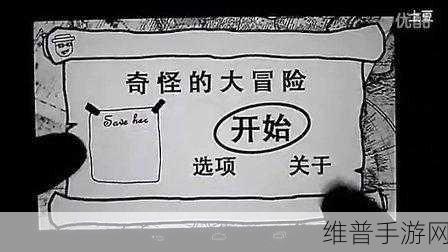 土豆
奇怪的大冒险
Save her
开始
选项
关于
维普手游网